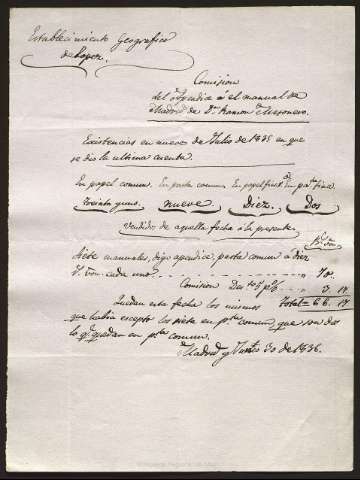 Establecimiento Geografico
de Lopez.
Comision
del Apendice á el manual de
Madrid de Dn. Ramon de Mesonero.
Existencias en nueve de Julio de 1835 en que
se dio la ultima cuenta.
En papel comun. En pasta comun En papel fino. En pta. fina.
Treinta y uno. Nueve Diez. Dos
Vendido de aquella fecha a la presente
Rs. von.
Siete manuales, digo apendice, pasta comun á diez
rs. von. cada uno 70.
Comision 3. 17
Total = 66. 17
Quedan esta fecha los mismos
que habia escepto los siete en pta. comun, que son dos
los qe. quedan en pta. comun.
Madrid y 30 de 1836.